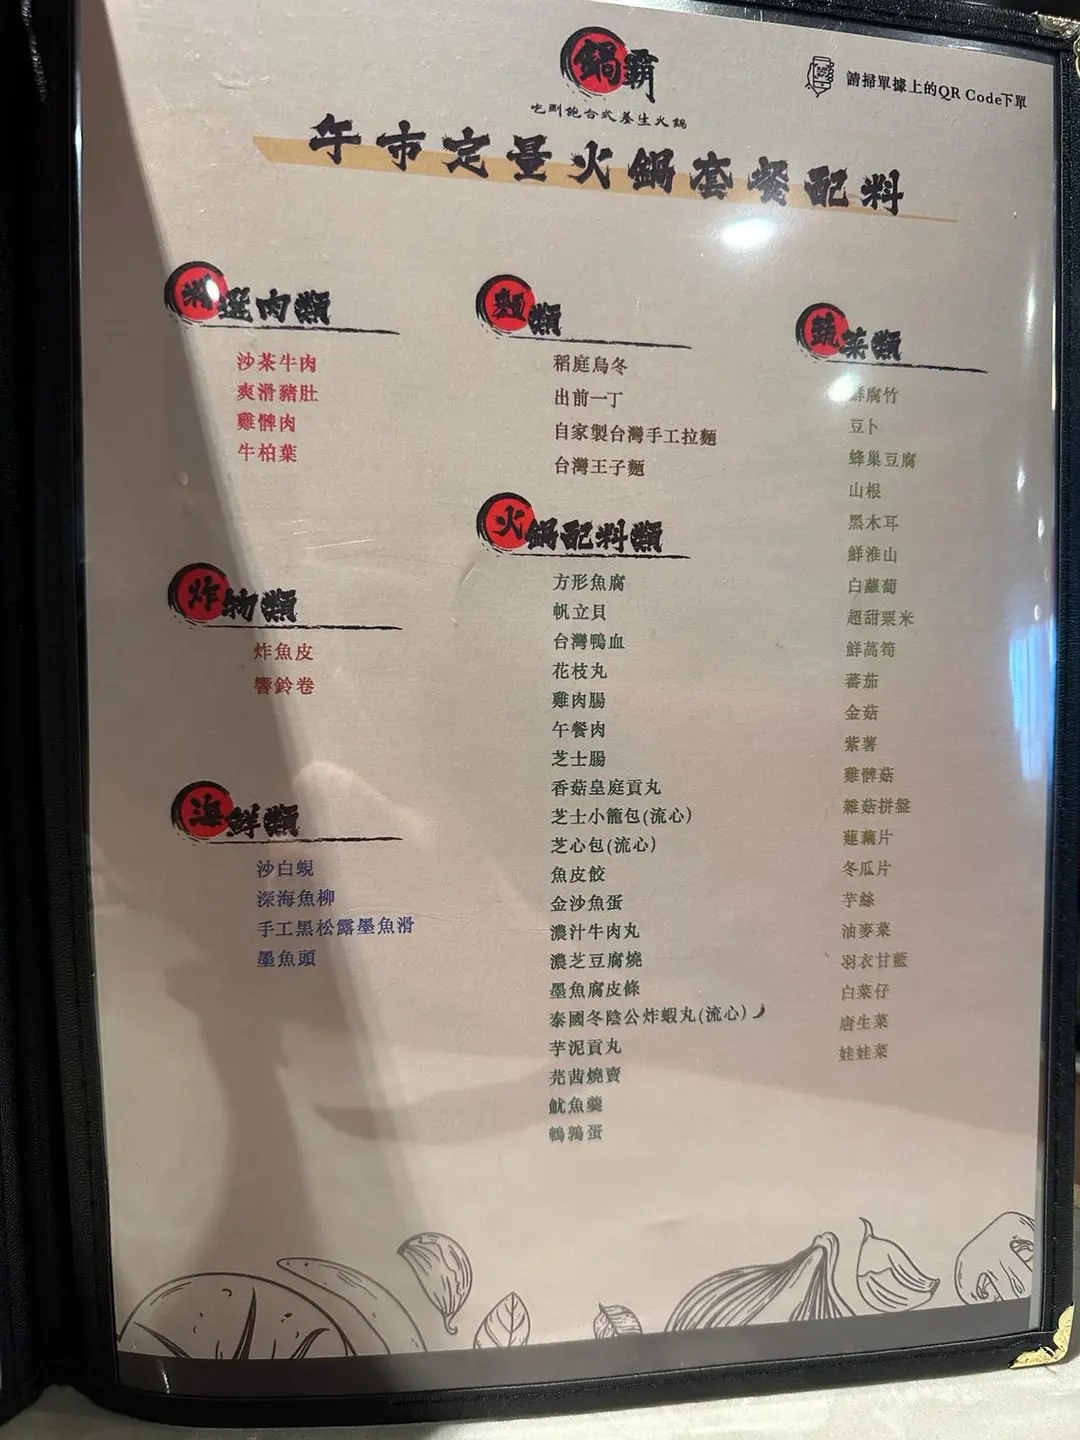 鍋霸
吃涮飽台式養生火鍋
請掃單據上的QR Code下單
午市定量火鍋套餐配料
精選肉類
沙茶牛肉
爽滑豬肚
雞髀肉
牛柏葉
炸物類
炸魚皮
響鈴卷
海鮮類
沙白蜆
深海魚柳
手工黑松露墨魚滑
墨魚頭
麵類
稻庭烏冬
出前一丁
自家製台灣手工拉麵
台灣王子麵
火鍋配料類
方形魚腐
帆立貝
台灣鴨血
花枝丸
雞肉腸
午餐肉
芝士腸
香菇皇庭貢丸
芝士小籠包(流心)
芝心包(流心)
魚皮餃
金沙魚蛋
濃汁牛肉丸
濃芝豆腐燒
墨魚腐皮條
泰國冬陰公炸蝦丸(流心)
芋泥貢丸
芫茜燒賣
魷魚羹
鵪鶉蛋
蔬菜類
鮮腐竹
豆卜
蜂巢豆腐
山根
黑木耳
鮮淮山
白蘿蔔
超甜粟米
鮮萵筍
蕃茄
金菇
紫薯
雞髀菇
雜菇拼盤
蓮藕片
冬瓜片
芋絲
油麥菜
羽衣甘藍
白菜仔
唐生菜
娃娃菜